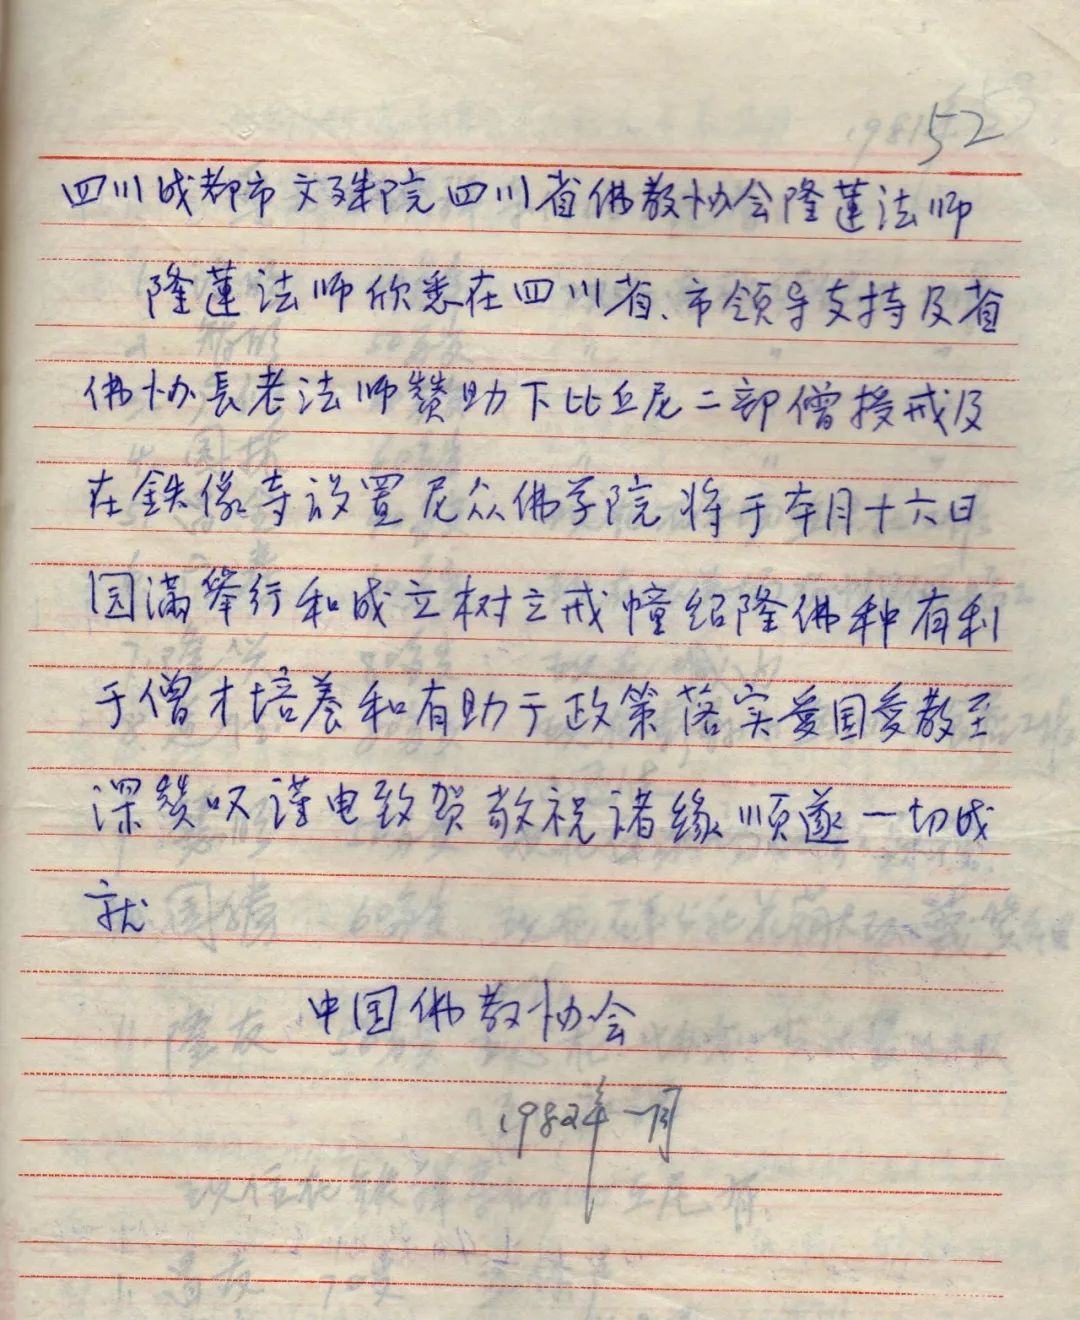 52
四川成都市文殊院四川省佛教协会隆蓮法师
隆蓮法师欣悉在四川省、市领导支持及省
佛协長老法师赞助下比丘尼二部僧授戒及
在鉄像寺设置尼众佛学院将于本月十六日
园满举行和成立树立戒幢绍隆佛种有利
于僧才培養和有助于政策落实爱国爱教至
深赞叹谨电致贺敬祝诸缘顺遂一切成
就
中国佛教协会
1982年一月